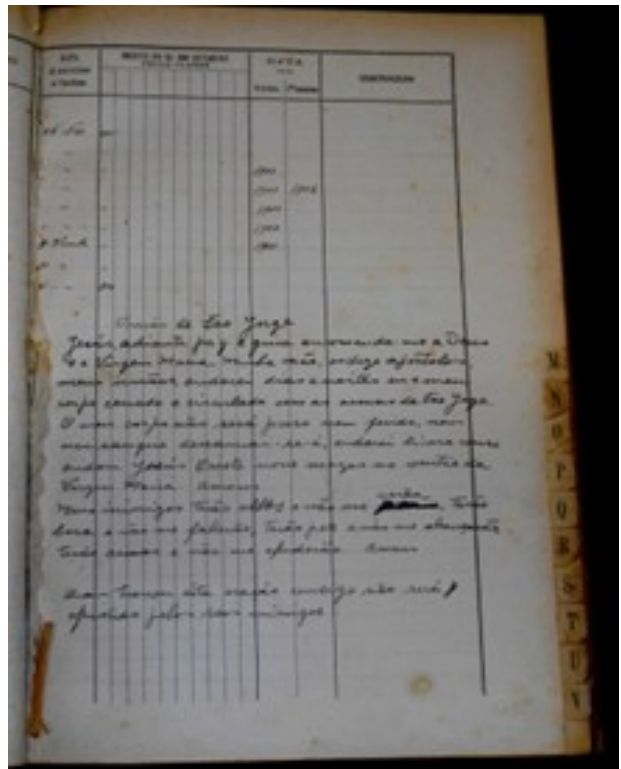 DATA
OBSERVAÇÕES
1900
1900 1906
1900
1900
1900
Oração de São Jorge
Jesus adiante paz e guia encomendo-me a Deus
e a Virgem Maria, minha mãe, os doze apóstolos
meus irmãos, andarei dias e noites eu e meu
corpo cercado e circulado com as armas de São Jorge.
O meu corpo não será preso nem ferido, nem
meu sangue derramar-se-á, andarei livre como
andou Jesús Cristo nove mezes no ventre da
Virgem Maria Amem
Meus inimigos terão olhos e não me verão, terão
boca e não me falarão, terão pés e não me alcançarão
terão armas e não me ofenderão Amem
Quem trouxer esta oração comsigo não será
ofendido pelos seus inimigos
M
N
O
P
Q
R
S
T
U
V